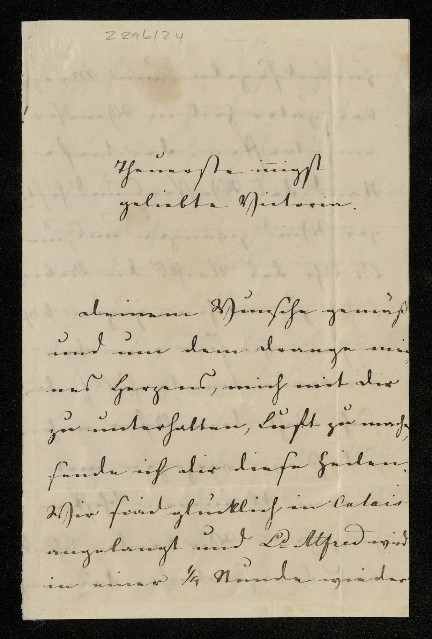 2296/24
Theuerste innigst
geliebte Victoria.
Deinem Wunsche gemäß
und um dem Drange mei
nes Herzens, mich mit Dir
zu unterhalten, Luft zu mache
sende ich Dir diese Zeilen.
Wir sind glücklich in Calais
angelangt und Ld Alfred wird
in einer 1/4 Stunde wieder